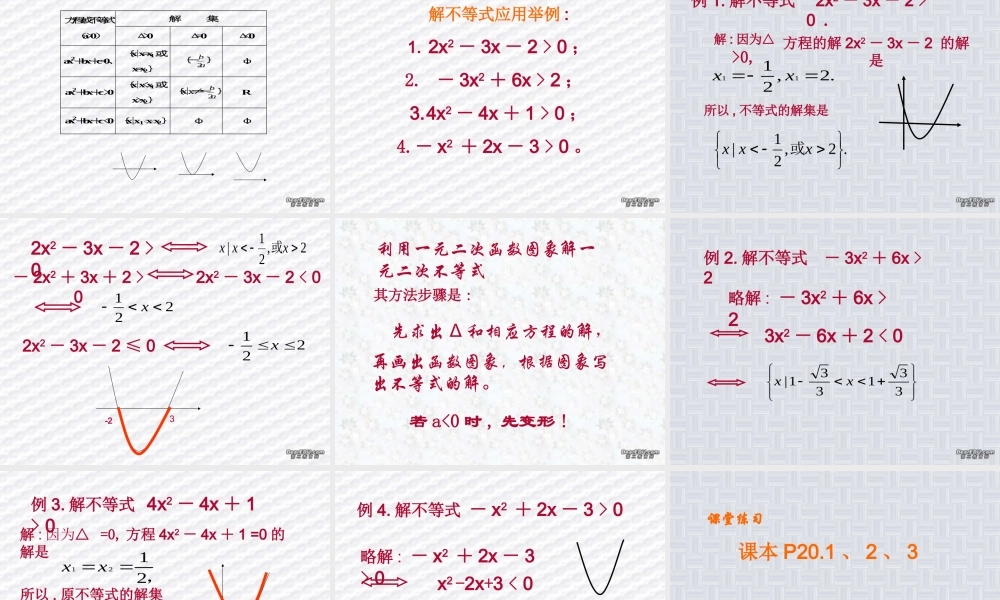 方程或不等式 解 集
(a>0) △>0 △=0 △<0
ax²+bx+c=0 Φ
ax²+bx+c>0 R
ax²+bx+c<0 Φ Φ
解不等式应用举例 :
1. 2x² － 3x － 2 > 0 ;
2. － 3x² + 6x > 2 ;
3.4x² － 4x + 1 > 0 ;
4.－ x² + 2x － 3 > 0 。
例 1. 解不等式 2x² － 3x － 2 >
0 .
解 : 因为△ >0, 方程的解 2x² － 3x － 2 的解是
x₁ = -1/2 , x₁ = 2.
所以 , 不等式的解集是
{x | x < -1/2 , 或x > 2}.
2x² － 3x － 2 > 0 x | x < -1/2 , 或x > 2
－ 2x² + 3x + 2 > 0 2x² － 3x － 2 < 0
-1/2 < x < 2
2x² － 3x － 2 ≤ 0 -1/2 ≤ x ≤ 2
-2 3
利用一元二次函数图象解一
元二次不等式
其方法步骤是 :
先求出 Δ 和相应方程的解，
再画出函数图象，根据图象写
出不等式的解。
若 a<0 时 , 先变形 !
例 2. 解不等式 － 3x² + 6x >
2
略解 : － 3x² + 6x >
2
3x² － 6x + 2 < 0
{x | 1 - √3/3 < x < 1 + √3/3}
例 3. 解不等式 4x² － 4x + 1
> 0
解 : 因为△ =0, 方程 4x² － 4x + 1 =0 的
解是
x₁ = x₂ = 1/2 ,
所以 , 原不等式的解集
例 4. 解不等式 － x² + 2x － 3 > 0
略解 : － x² + 2x － 3
> 0
x² -2x+3 < 0
课堂练习
课本 P20.1 、 2 、 3